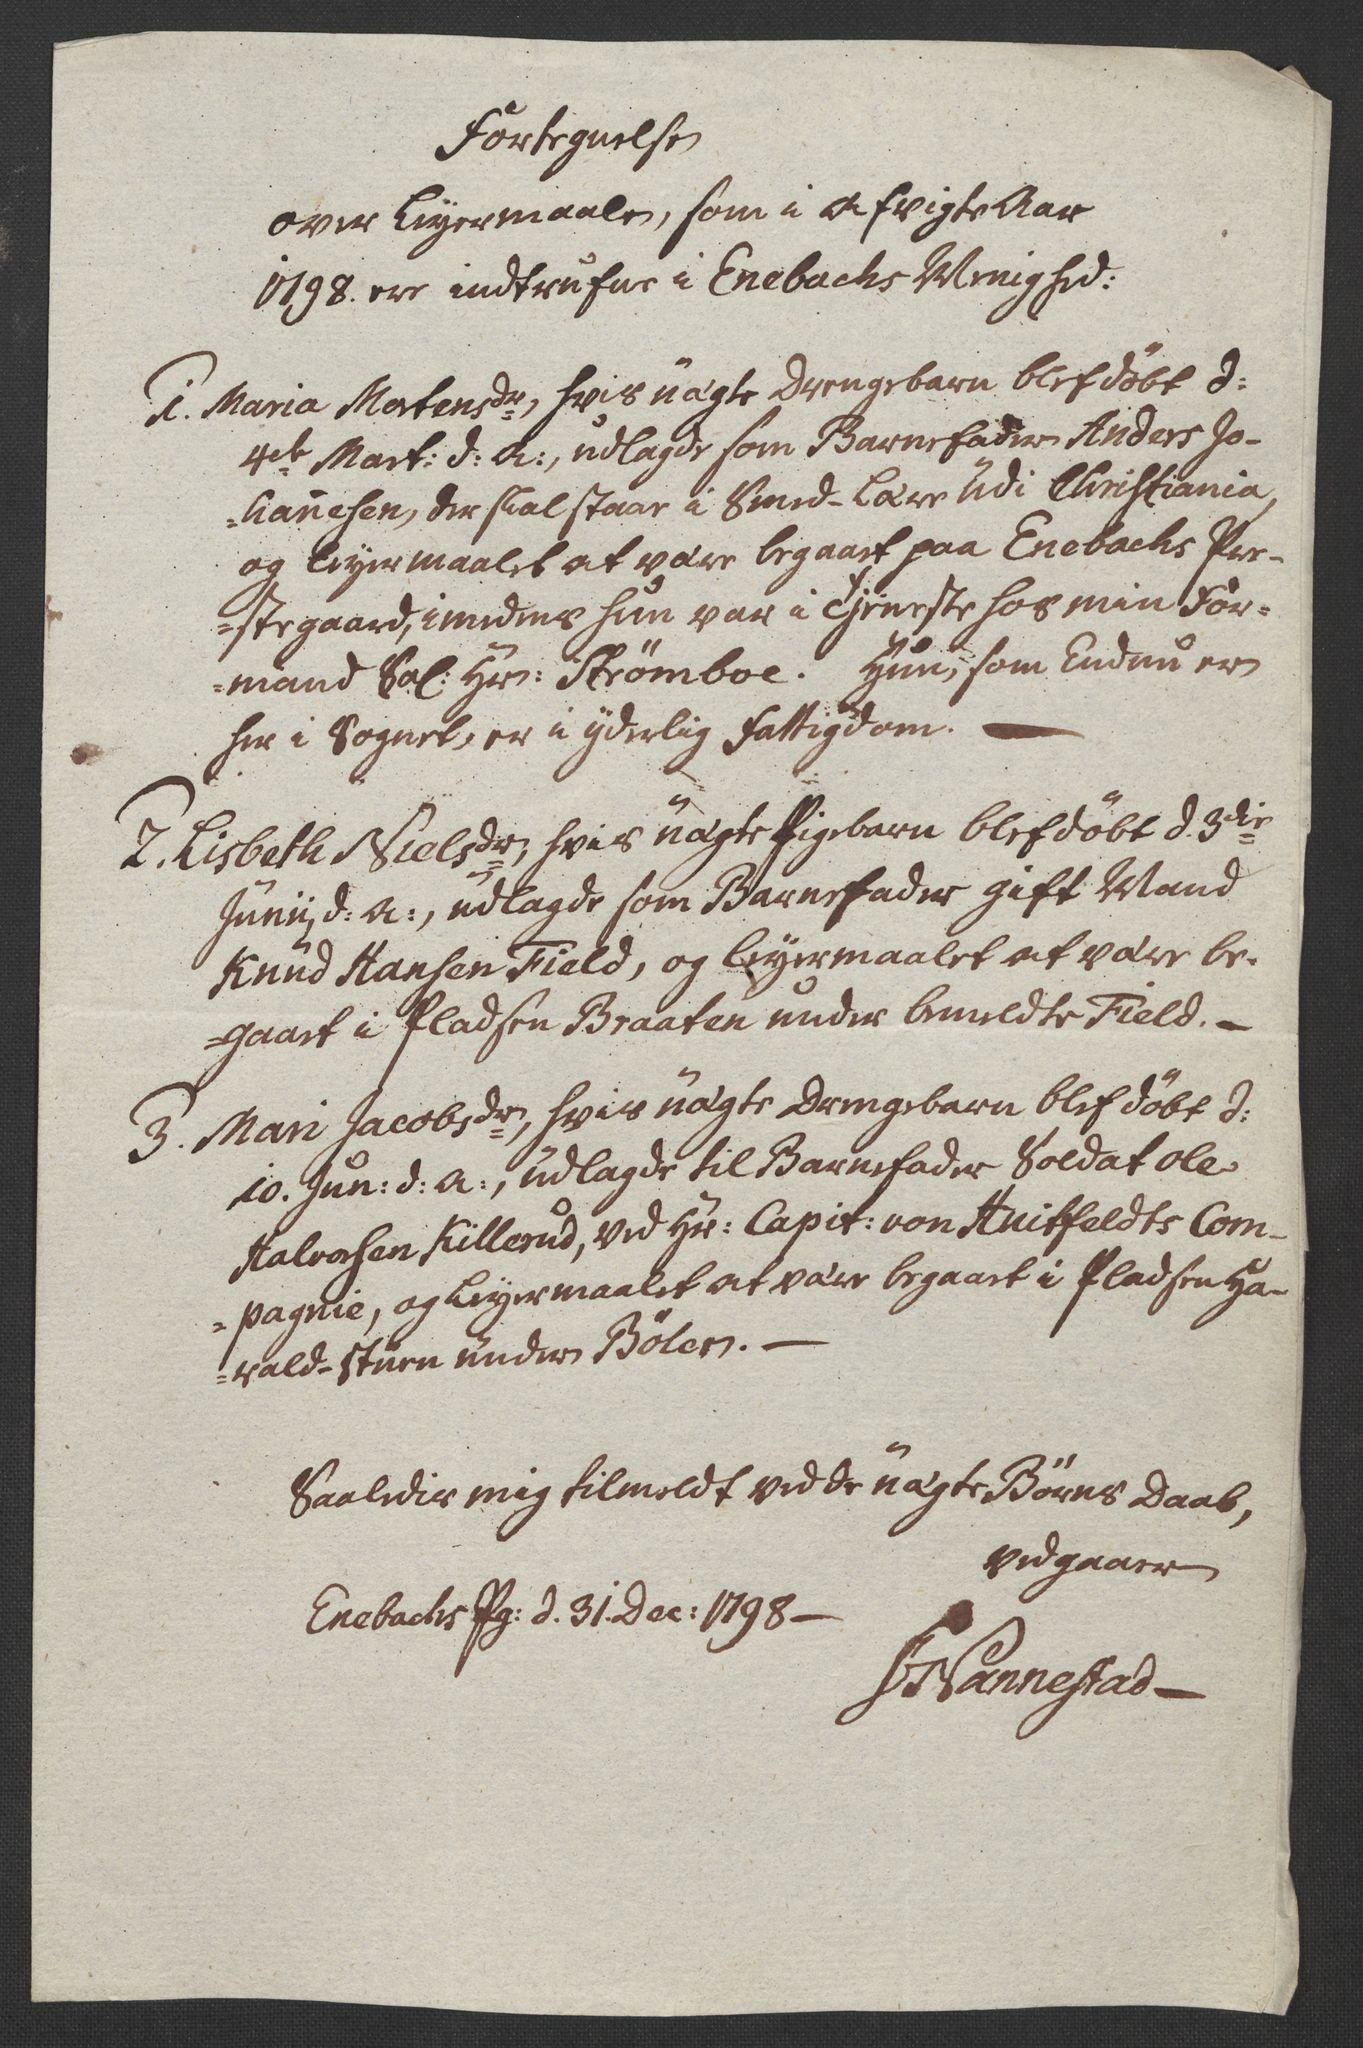 Fortegnelse
over Leyermaale, som i afvigte Aar
1798. ere indtrufne i Enebachs Menighed:
1. Maria Mortensdr, hvis uægte Drengebarn blef döbt d:
4de Mart: d: A:, udlagde som Barnefader Anders Jo-
=hannesen, der skal staae i Smed-Lære udi Christiania,
og Leyermaalet at være begaaet paa Enebachs Præ-
=stegaard, imedens hun var i Tjeneste hos min For-
=mand Sal: Hr: Strömboe. Hun, som Endnu er
her i Sognet, er i yderlig Fattigdom. —
2. Lisbeth Nielsdr, hvis uægte Pigebarn blef döbt d. 3die
Junii, d: A:, udlagde som Barnefader gift Mand
Knud Hansen Field, og Leyermaalet at være be-
=gaaet i Pladsen Braaten under bemeldte Field. —
3. Mari Jacobsdr, hvis uægte Drengebarn blef döbt d:
10. Jun: d: A:, udlagde til Barnefader Soldat Ole
Halvorsen Killerud, ved Hr: Capit: von Huitfeldts Com-
=pagnie, og Leyermaalet at være begaaet i Pladsen Ha-
=rald-stuen under Böler. —
Saaledes mig tilmeldt ved de uægte Börns Daab,
vedgaaer
Enebachs Pg: d. 31. Dec: 1798 —
Nannestad —